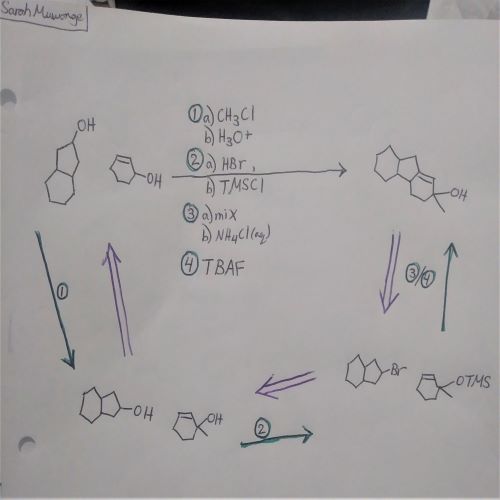 Sarah Muwonge
① a) CH₃Cl
b) H₃O+
② a) HBr,
b) TMSCl
③ a) mix
b) NH₄Cl(aq)
④ TBAF
OH
OH
OH
①
③/④
Br
OTMS
OH
OH
②